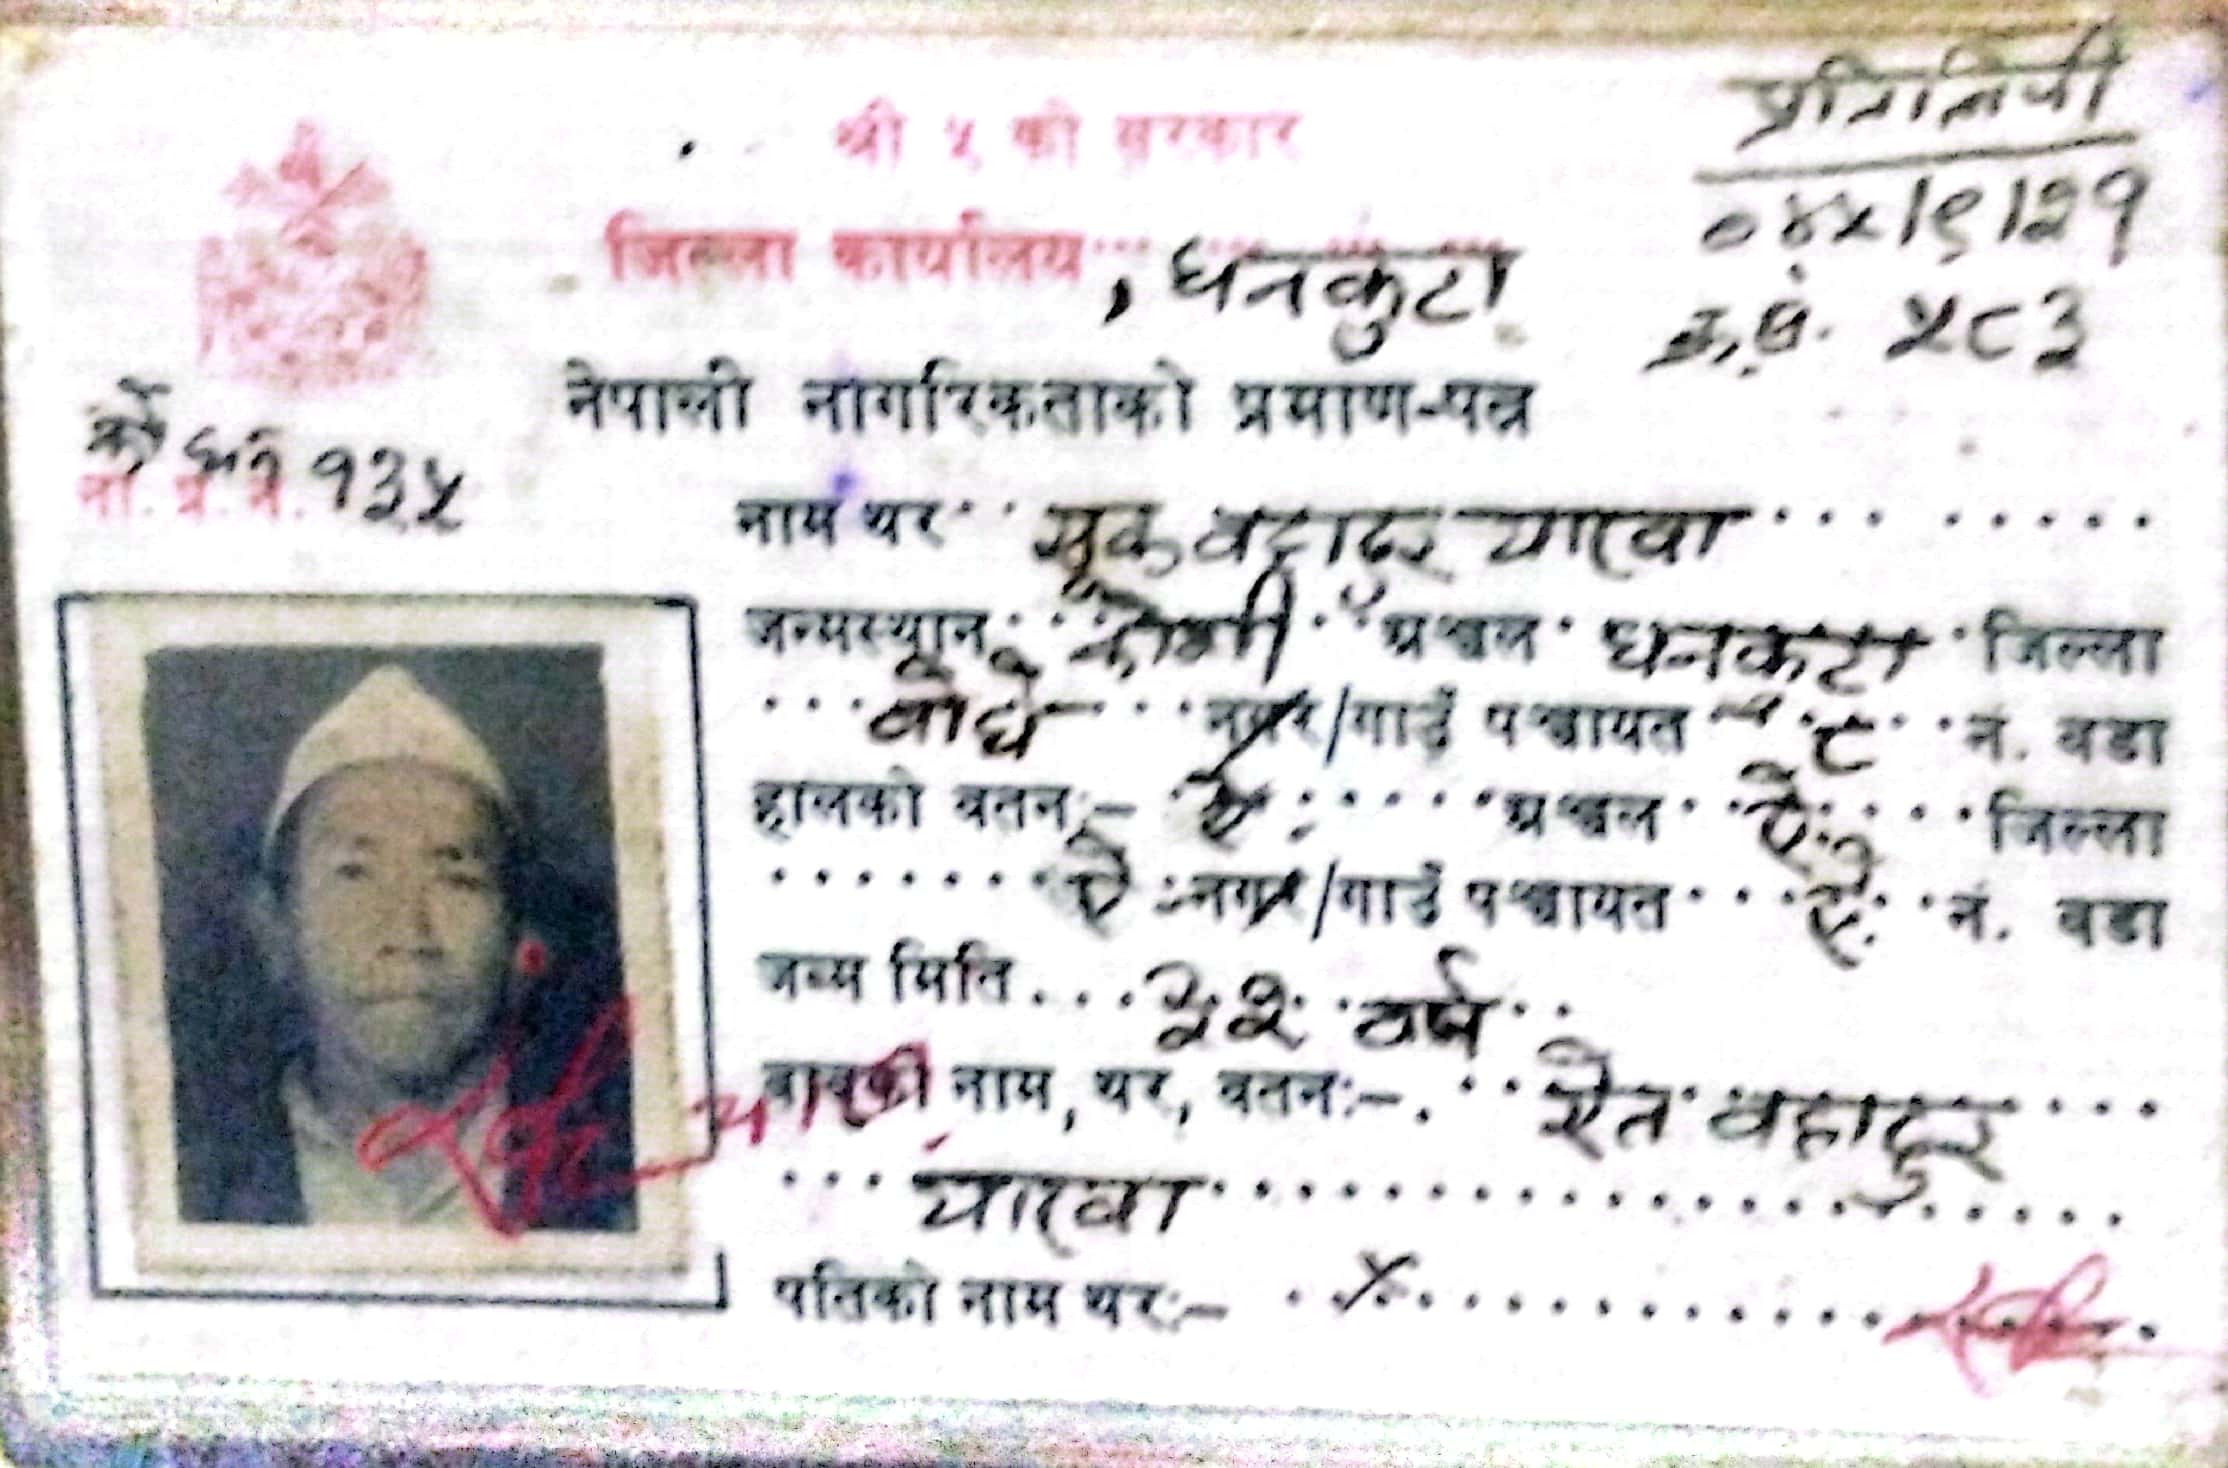 प्रतिलिपी
०४५।९।२१
क्र.सं. ५८३
श्री ५ को सरकार
जिल्ला कार्यालय , धनकुटा
नेपाली नागरिकताको प्रमाण-पत्र
ना. प्र. प. १३५
नाम थर सूक वहादुर याख्वा
जन्मस्थान कोशी अञ्चल धनकुटा जिल्ला
वोधे नगर/गाउँ पञ्चायत ८ नं. वडा
हालको वतन:- ऐ अञ्चल ऐ जिल्ला
ऐ नगर/गाउँ पञ्चायत ऐ नं. वडा
जन्म मिति वर्ष
बाबुको नाम, थर, वतन:- ऐत वहादुर
याख्वा
पतिको नाम थर:- ×